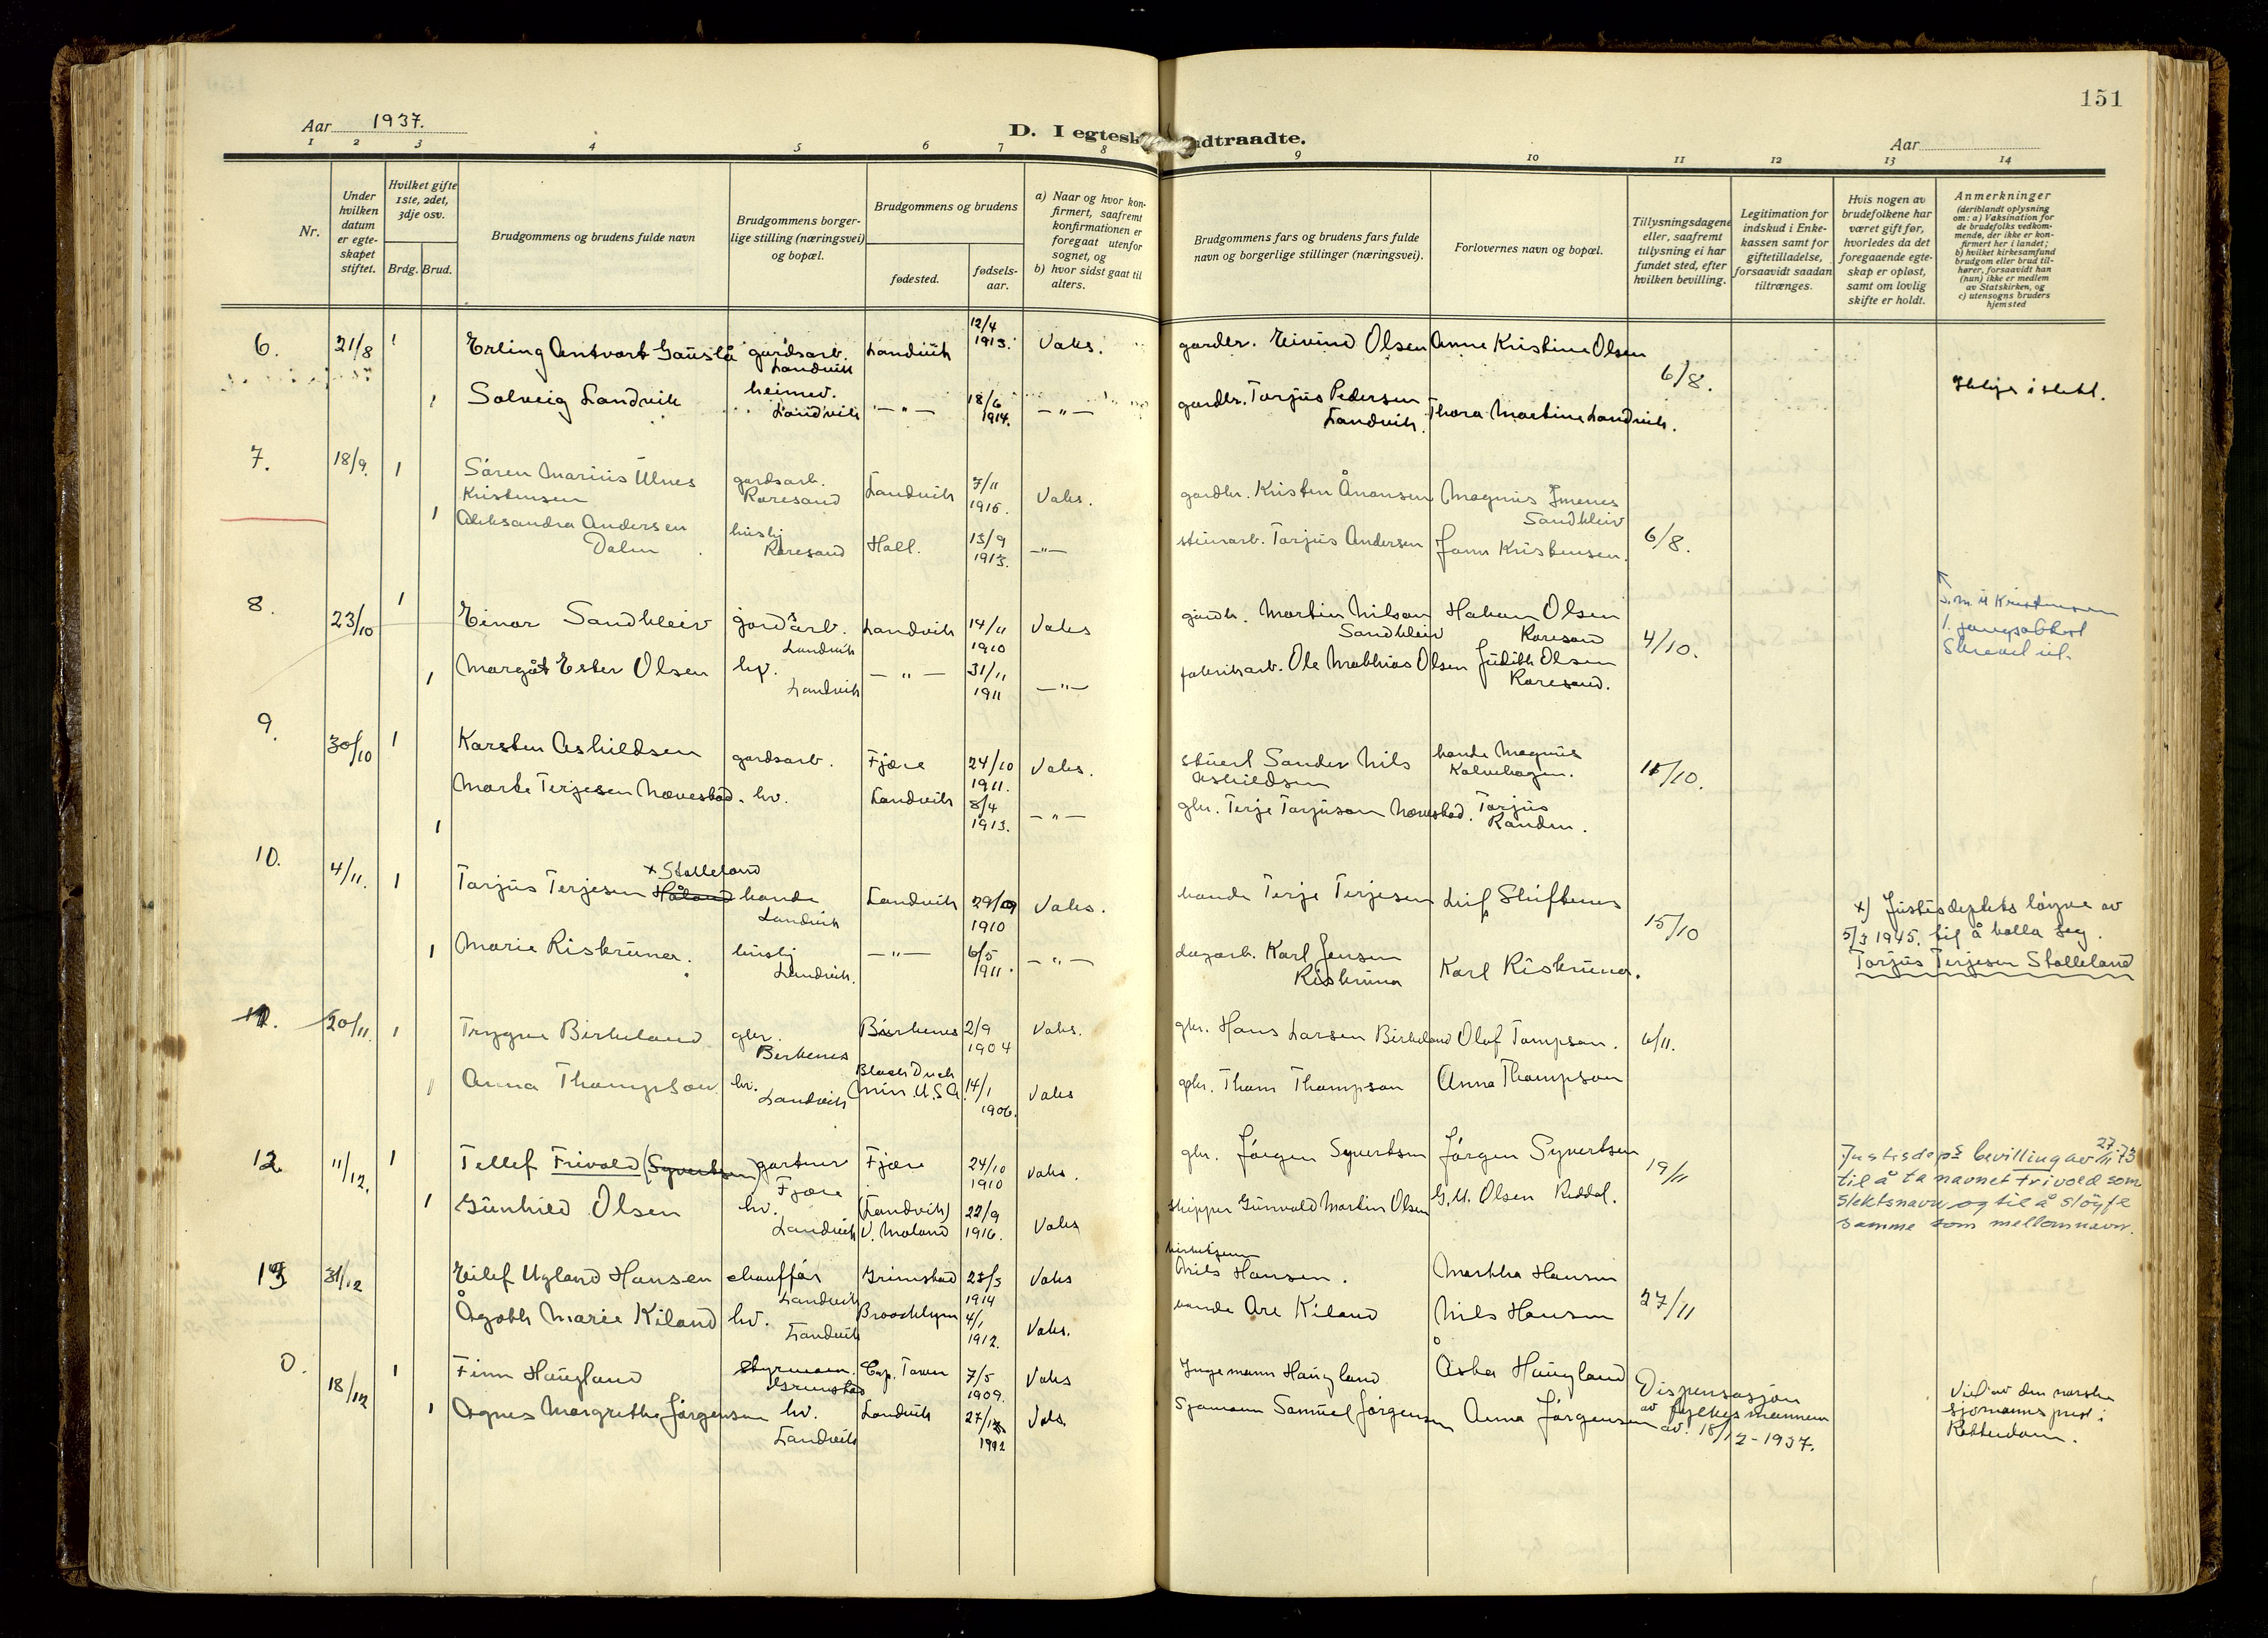 151
Aar 1937.
D. I egtesk
ndtraadte.
Aar
1 2 3 4 5 6 7 8 9 10 11 12 13 14
Nr.
Under hvilken datum er egteskapet stiftet.
Hvilket gifte 1ste, 2det, 3dje osv.
Brdg. Brud.
Brudgommens og brudens fulde navn
Brudgommens borgerlige stilling (næringsvei) og bopæl.
Brudgommens og brudens
fødested.
fødselsaar.
a) Naar og hvor konfirmert, saafremt konfirmationen er foregaat utenfor sognet, og
b) hvor sidst gaat til alters.
Brudgommens fars og brudens fars fulde navn og borgerlige stillinger (næringsvei).
Forlovernes navn og bopæl.
Tillysningsdagene eller, saafremt tillysning ei har fundet sted, efter hvilken bevilling.
Legitimation for indskud i Enkekassen samt for giftetilladelse, forsaavidt saadan tiltrænges.
Hvis nogen av brudefolkene har været gift før, hvorledes da det foregaaende egteskap er opløst, samt om lovlig skifte er holdt.
Anmerkninger
(deriblandt oplysning om: a) Vaksination for de brudefolks vedkommende, der ikke er konfirmert her i landet; b) hvilket kirkesamfund brudgom eller brud tilhører, forsaavidt han (hun) ikke er medlem av Statskirken, og c) utensogns bruders hjemsted
6. 21/8 1 Erling Antvort Gauslå gardsarb. Landvik Landvik 12/4 1913. Vaks. gardbr. Eivind Olsen Anne Kristine Olsen
6/8. Ikkje i slekt.
1 Solveig Landvik heimev. Landvik — " — 18/6 1914. — " — gardbr. Tarjus Pedersen Landvik. Thora Martine Landvik.
7. 18/9. 1 Sören Marius Ulnes Kristensen gardsarb. Roresand Landvik 7/11 1916. Vaks. gardbr. Kristen Ånonsen Magnus Imenes Sandkleiv
6/8.
1 Aleksandra Andersen Dalen huslj Roresand Holl. 13/9 1913. — " — steinarb. Tarjus Andersen Jonn Kristensen.
8. 23/10 1 Einar Sandkleiv gardsarb. Landvik Landvik 14/11 1910 Vaks gardb. Martin Nilson Sandkleiv Hakon Olsen Roresand
4/10. S. M. U Kristensen 1. gangsattest Skrevet ut.
1 Margåt Ester Olsen hv. Landvik — " — 31/11 1911 — " — fabrikarb. Ole Mathias Olsen Judith Olsen Roresand.
9. 30/10 1 Karsten Askildsen gardsarb. Fjære 24/10 1911. Vaks. stuert Sander Nils Askildsen bonde Magnus Kalvehagen.
15/10.
1 Marte Terjesen Nævestad. hv. Landvik 8/4 1913. — " — gbr. Terje Tarjuson Nævestad. Tarjus Randen.
10. 4/11. 1 Tarjus Terjesen Håland x Stalleland bonde Landvik Landvik 29/09 1910 Vaks. bonde Terje Terjesen Leif Skiftenes
15/10 x) Justisdeptets löyve av 5/3 1945. til å kalla seg. Tarjus Terjesen Stalleland
1 Marie Riskruner. huslj Landvik. — " — 6/5 1911. — " — dagarb. Karl Jensen Riskruna Karl Riskruna.
11. 20/11. 1 Trygve Birkeland gbr. Birkenes Birkenes 2/9 1904 Vaks. gbr. Hans Larsen Birkeland Olaf Tompson. 6/11.
1 Anna Thompson hv. Landvik Black Duck Minn. U.S.A. 14/1 1906. Vaks gbr. Thom Thompson Anna Thompson
12. 11/12. 1 Tellef Frivold (Syvertsen) gartner Fjære Fjære 24/10 1910 Vaks. gbr. Jörgen Syvertsen Jörgen Syvertsen
19/11 Justisdep's bevilling av 27/11 73 til å ta navnet Frivold som slektsnavn og til å slöyfe samme som mellomnavn.
1 Gunhild Olsen hv. Landvik (Landvik) V. Moland 22/9 1916. Vaks skipper Gunvald Martin Olsen G. M. Olsen Reddal.
13 31/12 Eilef Ugland Hansen chauffør Landvik Grimstad 23/3 1914 Vaks Nils Hansen. Martha Hansen
27/11
Ågoth Marie Kiland hv. Landvik Broocklyn 4/1 1912. Vaks. bonde Are Kiland Nils Hansen
0. 18/12 1 Finn Haugland styrmann. Grimstad Cap. Town 7/5 1909. Vaks Ingemann Haugland Åsta Haugland
Dispensasjon av fylkesmannen av. 18/12-1937. Viet av den norske sjömannsprest i Rotterdam.
1 Agnes Margrethe Jörgensen hv. Landvik Landvik 27/12 1912 Vaks. Sjömann Samuel Jörgensen Anna Jörgensen